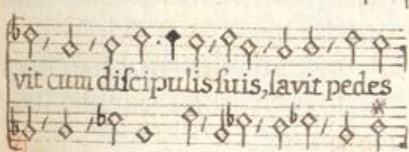 vit cum diſcipulis ſuis, lavit pedes